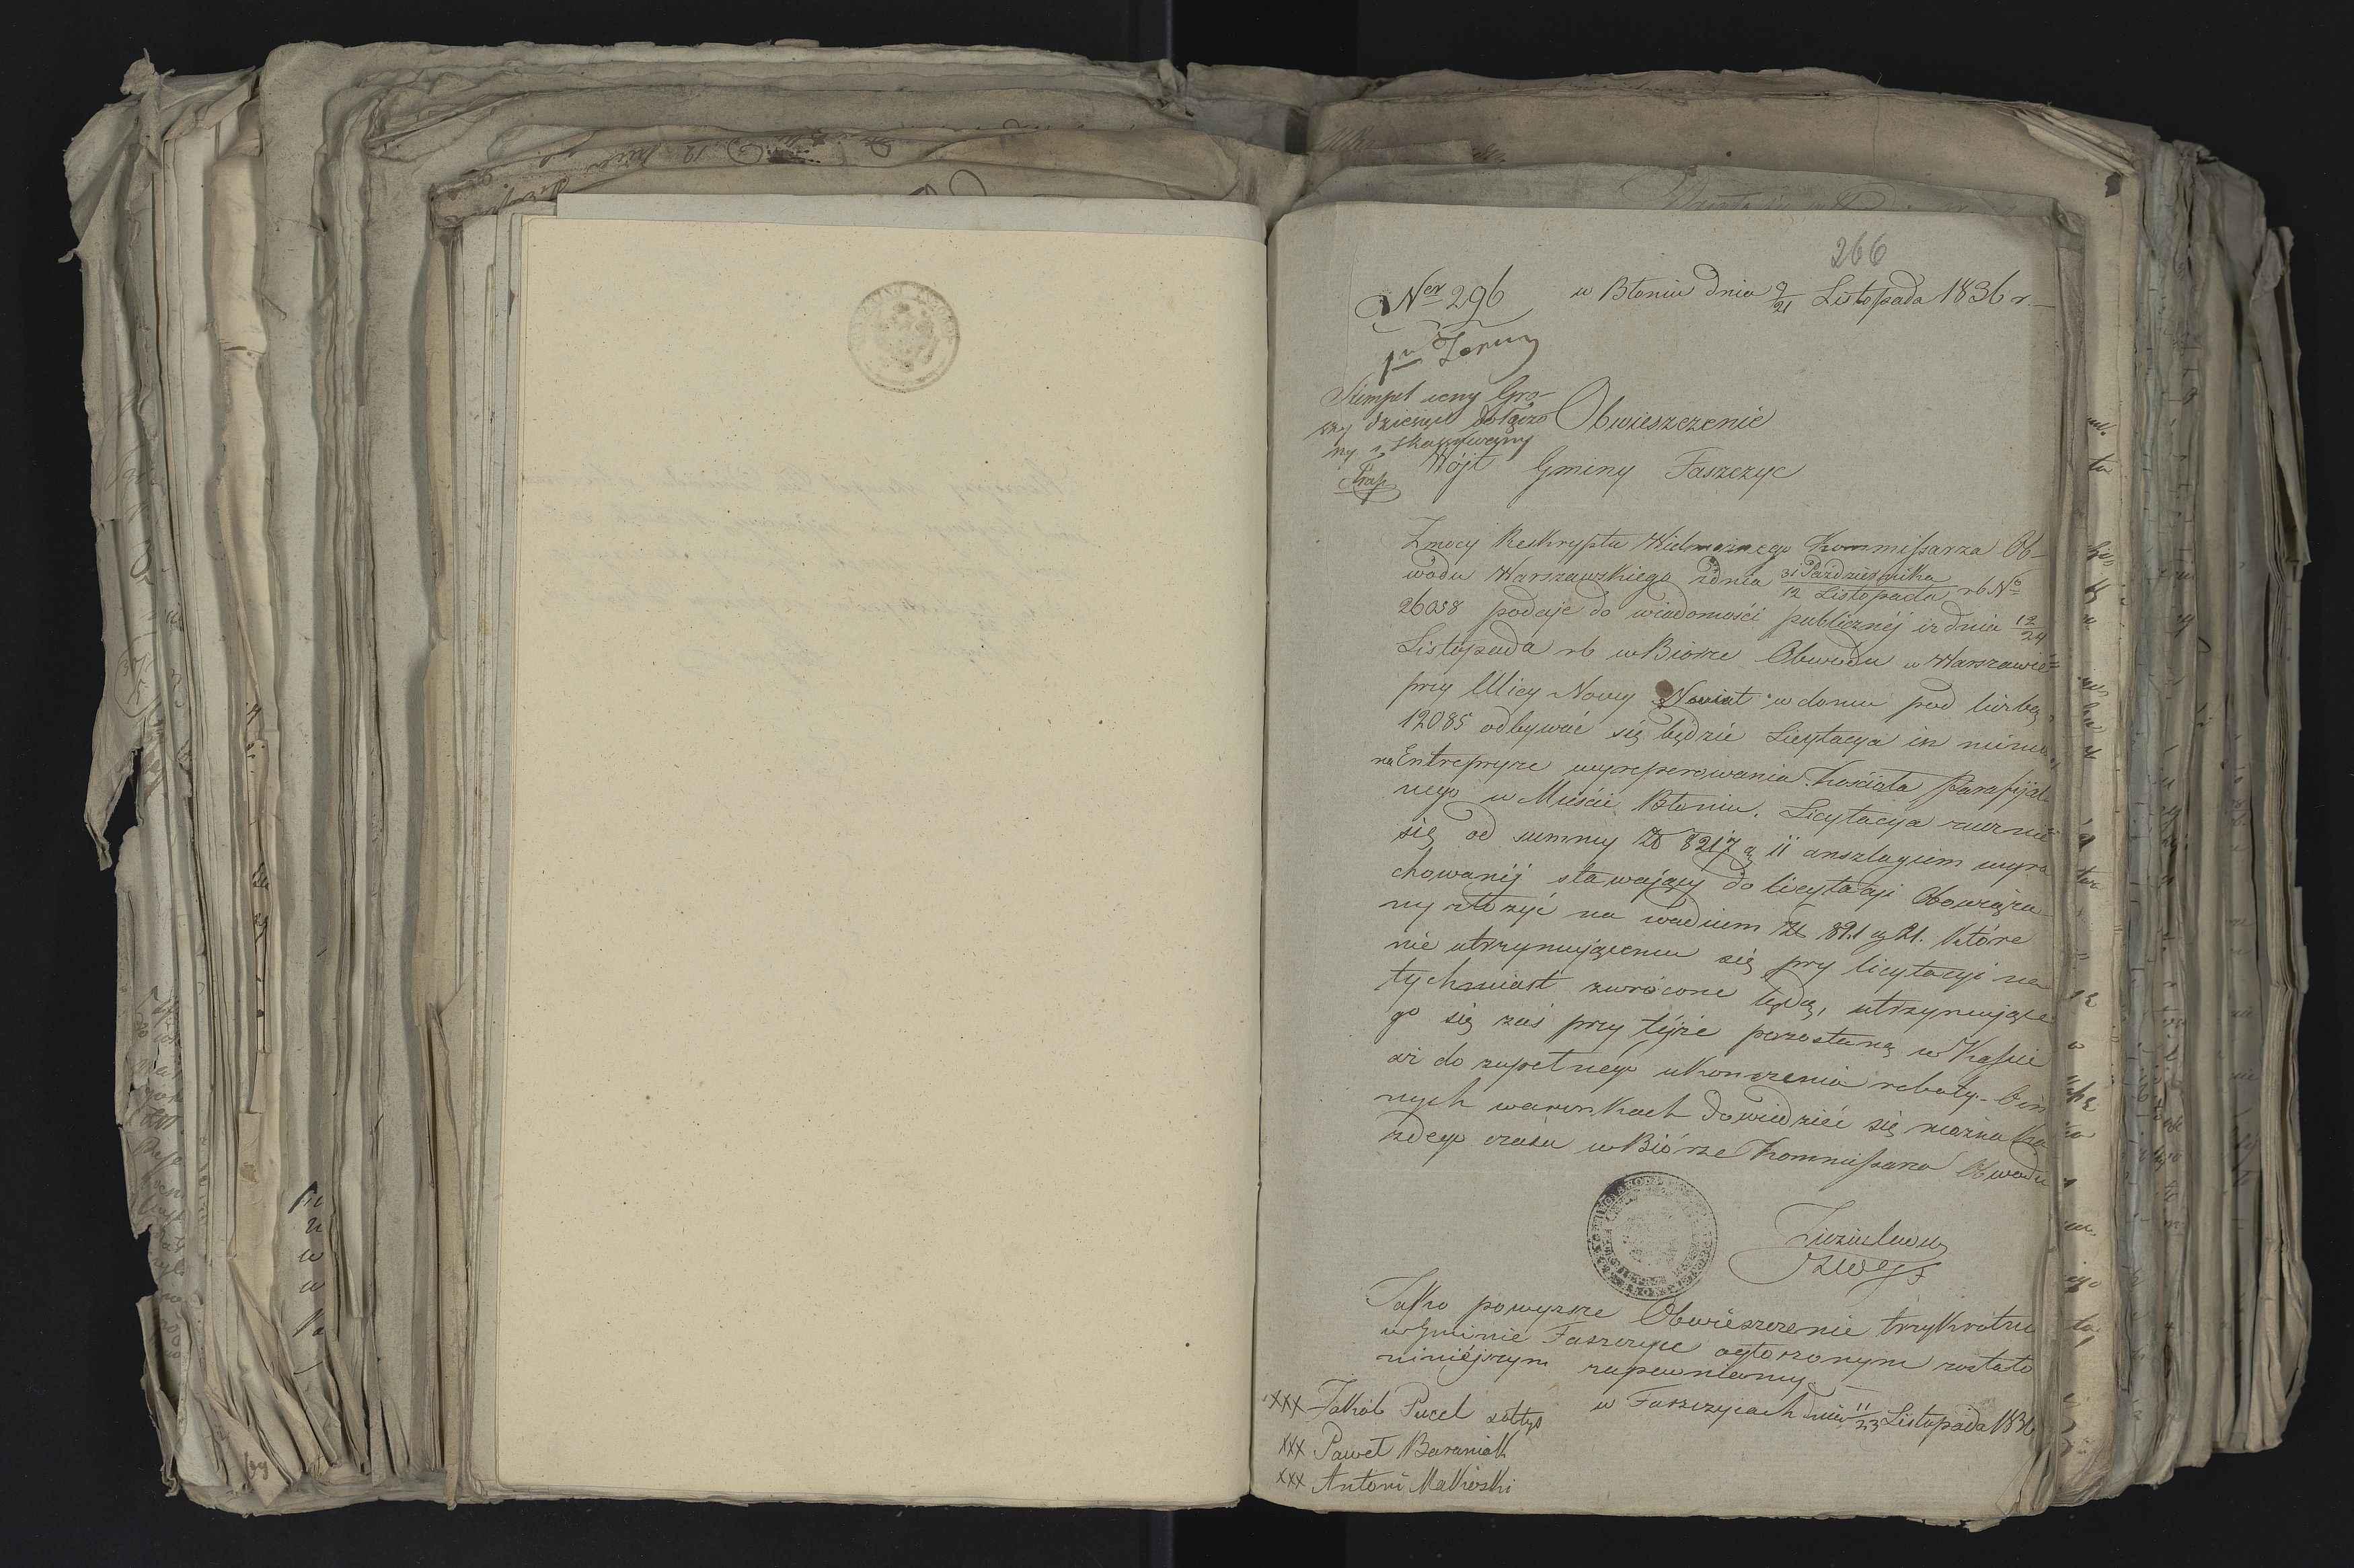 266
Ner 296 w Błoniu dnia 9/21 Listopada 1836 r.
Stempel ceny Gro-
szy dziesięć dołączo
ny i skassowany
Obwieszczenie
Wójt Gminy Faszczyc
Zmocy Reskryptu Wielmożnego Kommissarza Ob-
wodu Warszawskiego zdnia 31 Października/12 Listopada rb No
26058 podaje do wiadomości publicznéj iż dnia 12/24
Listopada rb w Biórze Obwodu w Warszawie
przy Ulicy Nowy Swiat w domu pod liczbą
12085 odbywać się będzie Licytacya in minus
na Entrepryze wyreperowania Kościoła Parafijal-
nego w Mieście Błoniu. Licytacya zacznie
się od summy Zł 8217 g 11 anszlagiem wyra
chowanéj stawający do licytacyi Obowiąza-
ny złożyć na wadium Zł 821 g 21. które
nie utrzymującemu się przy licytacyi na
tychmiast zwrócone będą, utrzymujące
go się zaś przy téjże pozostaną w Kassie
aż do zupełnego ukończenia roboty. O in
nych warunkach dowiedzieć się można ka
zdego czasu w Biórze Kommissarza Obwodu
Jako powyzsze Obwieszczenie trzykrotnie
w Gminie Faszczyce ogłoszonym zostało
niniéjszym zapewniamy
w Faszczycach dnia 11/23 Listopada 1836
xxx Jakób Pucel sołtys
xxx Paweł Baraniak
xxx Antoni Makioski